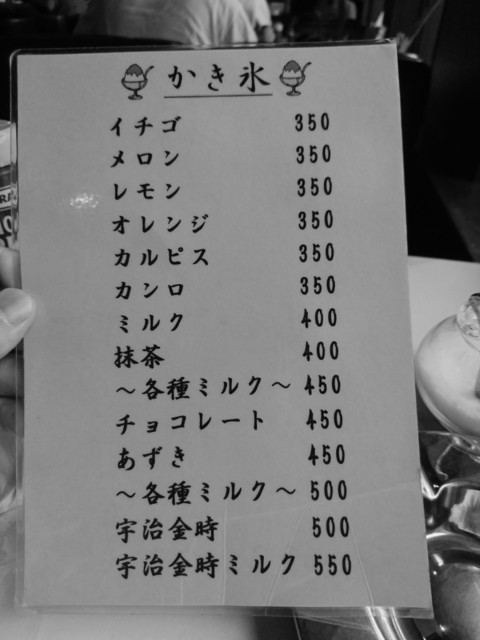 かき氷
イチゴ 350
メロン 350
レモン 350
オレンジ 350
カルピス 350
カンロ 350
ミルク 400
抹茶 400
～各種ミルク～ 450
チョコレート 450
あずき 450
～各種ミルク～ 500
宇治金時 500
宇治金時ミルク 550